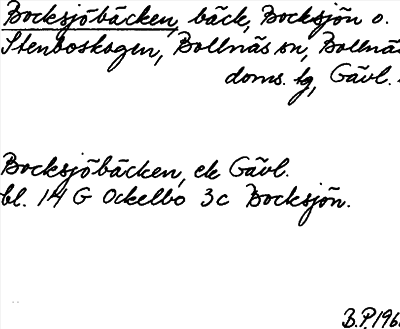 Bocksjöbäcken, bäck, Bocksjön o.
Stenboskogen, Bollnäs sn, Bollnäs
doms. tg, Gävl.
Bocksjöbäcken, ek Gävl.
bl. 14 G Ockelbo 3c Bocksjön.
B.P.196